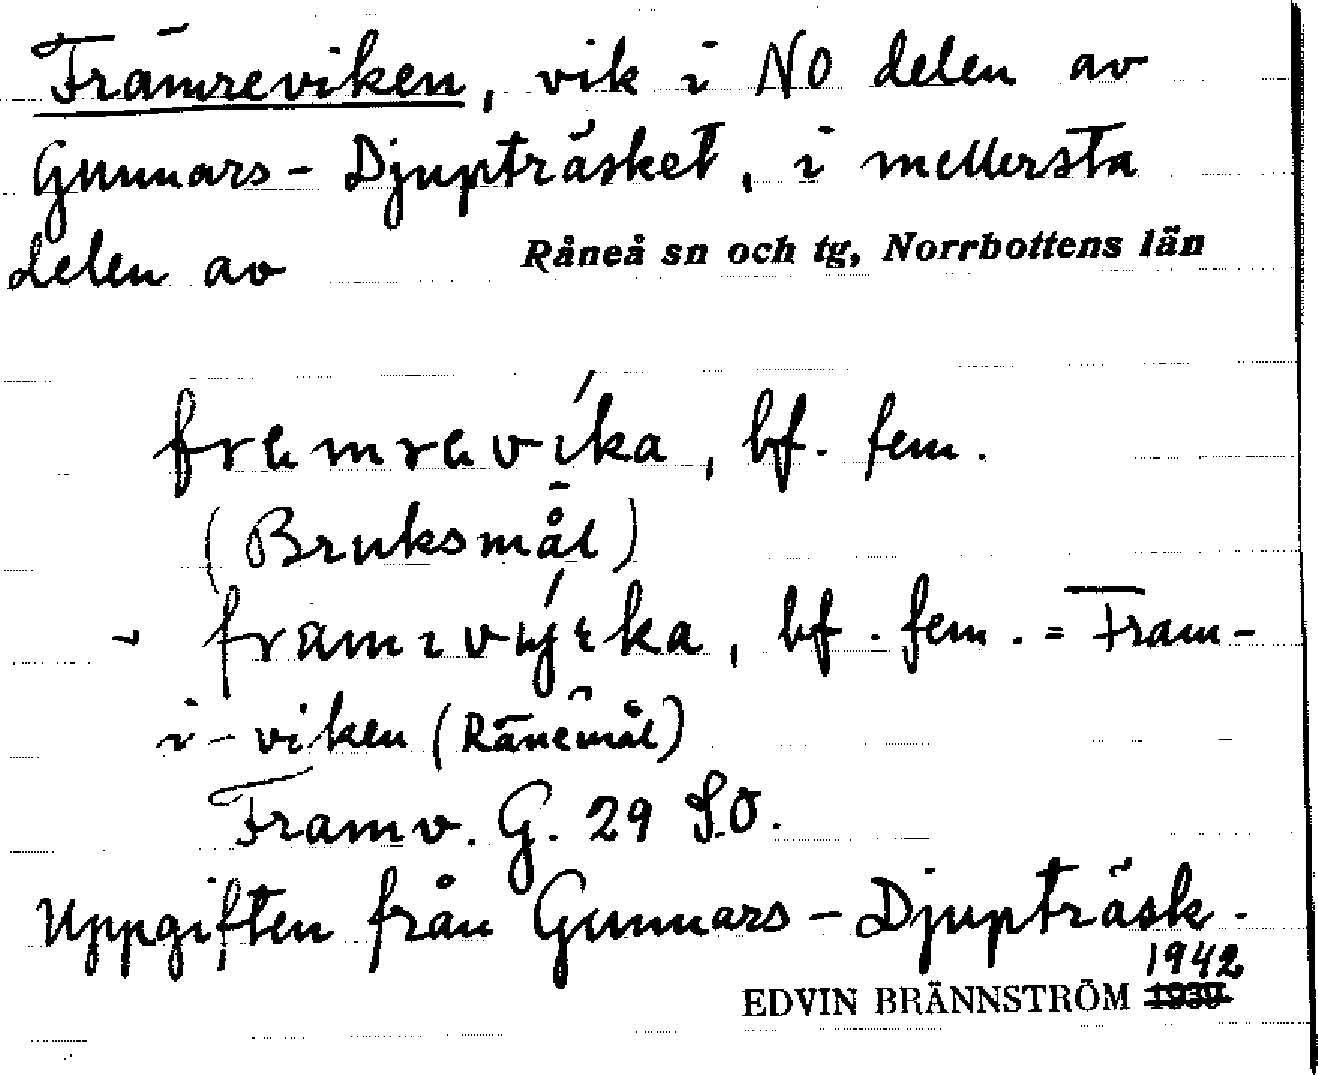 Främreviken, vik i NO delen av
Gunnars-Djupträsket, i mellersta
delen av Råneå sn och tg, Norrbottens län
framravíka, bf. fem.
(Bruksmål)
framı bf. fem. = Fram-
i-viken (Rånemål)
Framv. G. 29 S.O.
Uppgiften från Gunnars-Djupträsk.
1942
EDVIN BRÄNNSTRÖM 1939.